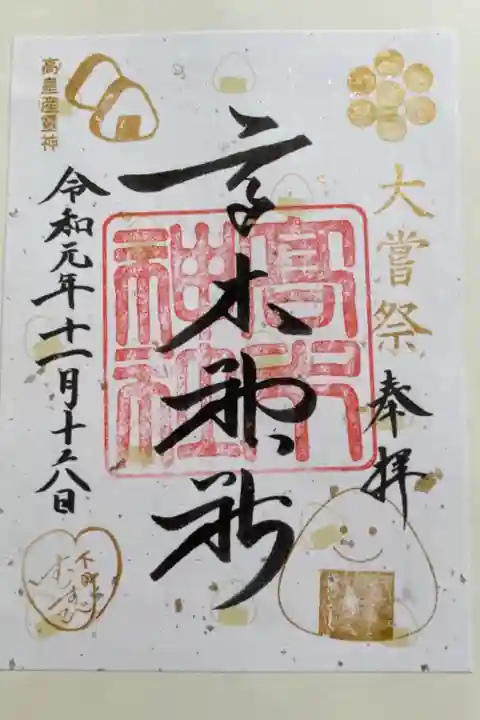 大嘗祭
奉拝
高木神社
高木神社
高皇産霊神
令和元年十一月十六日